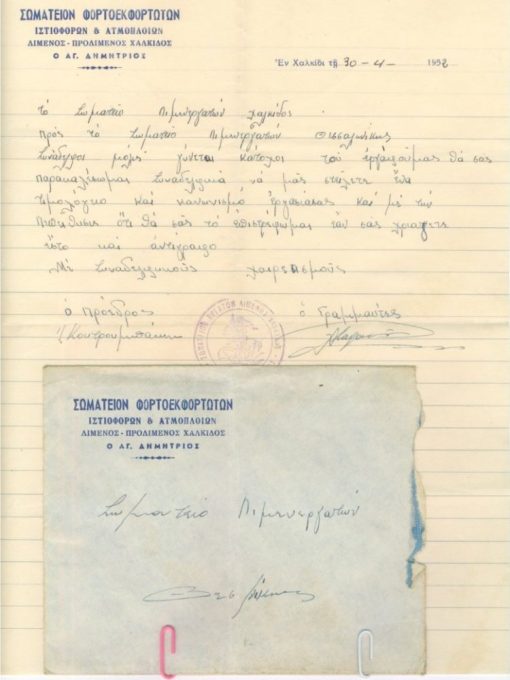 ΣΩΜΑΤΕΙΟΝ ΦΟΡΤΟΕΚΦΟΡΤΩΤΩΝ
ΙΣΤΙΟΦΟΡΩΝ & ΑΤΜΟΠΛΟΙΩΝ
ΛΙΜΕΝΟΣ - ΠΡΟΛΙΜΕΝΟΣ ΧΑΛΚΙΔΟΣ
Ο ΑΓ. ΔΗΜΗΤΡΙΟΣ
Ἐν Χαλκίδι τῇ 30-4-1952
τὸ Σωματείο Λιμενεργατών Χαλκίδος
Πρός το Σωματείο Λιμενεργατών Θεσσαλονίκης
Συνάδελφοι γίνεται κάτοχοι τοῦ θά σας
παρακαλέσωμαι Συναδελφικά νά μᾶς στείλετε ἕνα
τιμολόγειο και κανονισμό ἐργασίας και με την
ὅτι θά σᾶς τό ἐπιστρέψωμαι ἐάν σας
ἔστο και ἀντίγραφο
Μέ Συναδελφικούς χαιρετισμούς
ὁ Πρόεδρος ὁ Γραμματεύς
ΣΩΜΑΤΕΙΟΝ ΦΟΡΤΟΕΚΦΟΡΤΩΤΩΝ
ΙΣΤΙΟΦΟΡΩΝ & ΑΤΜΟΠΛΟΙΩΝ
ΛΙΜΕΝΟΣ - ΠΡΟΛΙΜΕΝΟΣ ΧΑΛΚΙΔΟΣ
Ο ΑΓ. ΔΗΜΗΤΡΙΟΣ
Σωματείο Λιμενεργατών